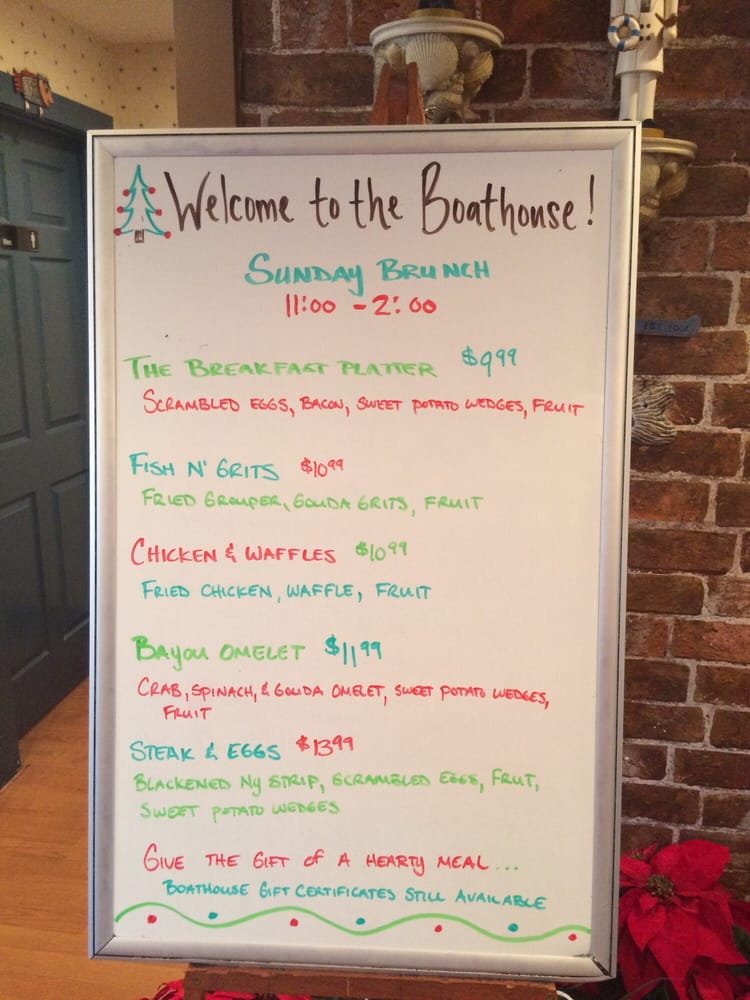 Welcome to the Boathouse!
Sunday Brunch
11:00 - 2:00
The Breakfast Platter $9.99
Scrambled eggs, Bacon, sweet potato wedges, Fruit
Fish N' Grits $10.99
Fried Grouper, Gouda Grits, Fruit
Chicken & Waffles $10.99
Fried chicken, Waffle, Fruit
Bayou Omelet $11.99
Crab, Spinach, & Gouda Omelet, sweet potato wedges,
Fruit
Steak & Eggs $13.99
Blackened NY Strip, Scrambled Eggs, Fruit,
Sweet potato wedges
Give the Gift of a Hearty Meal...
Boathouse Gift Certificates Still Available